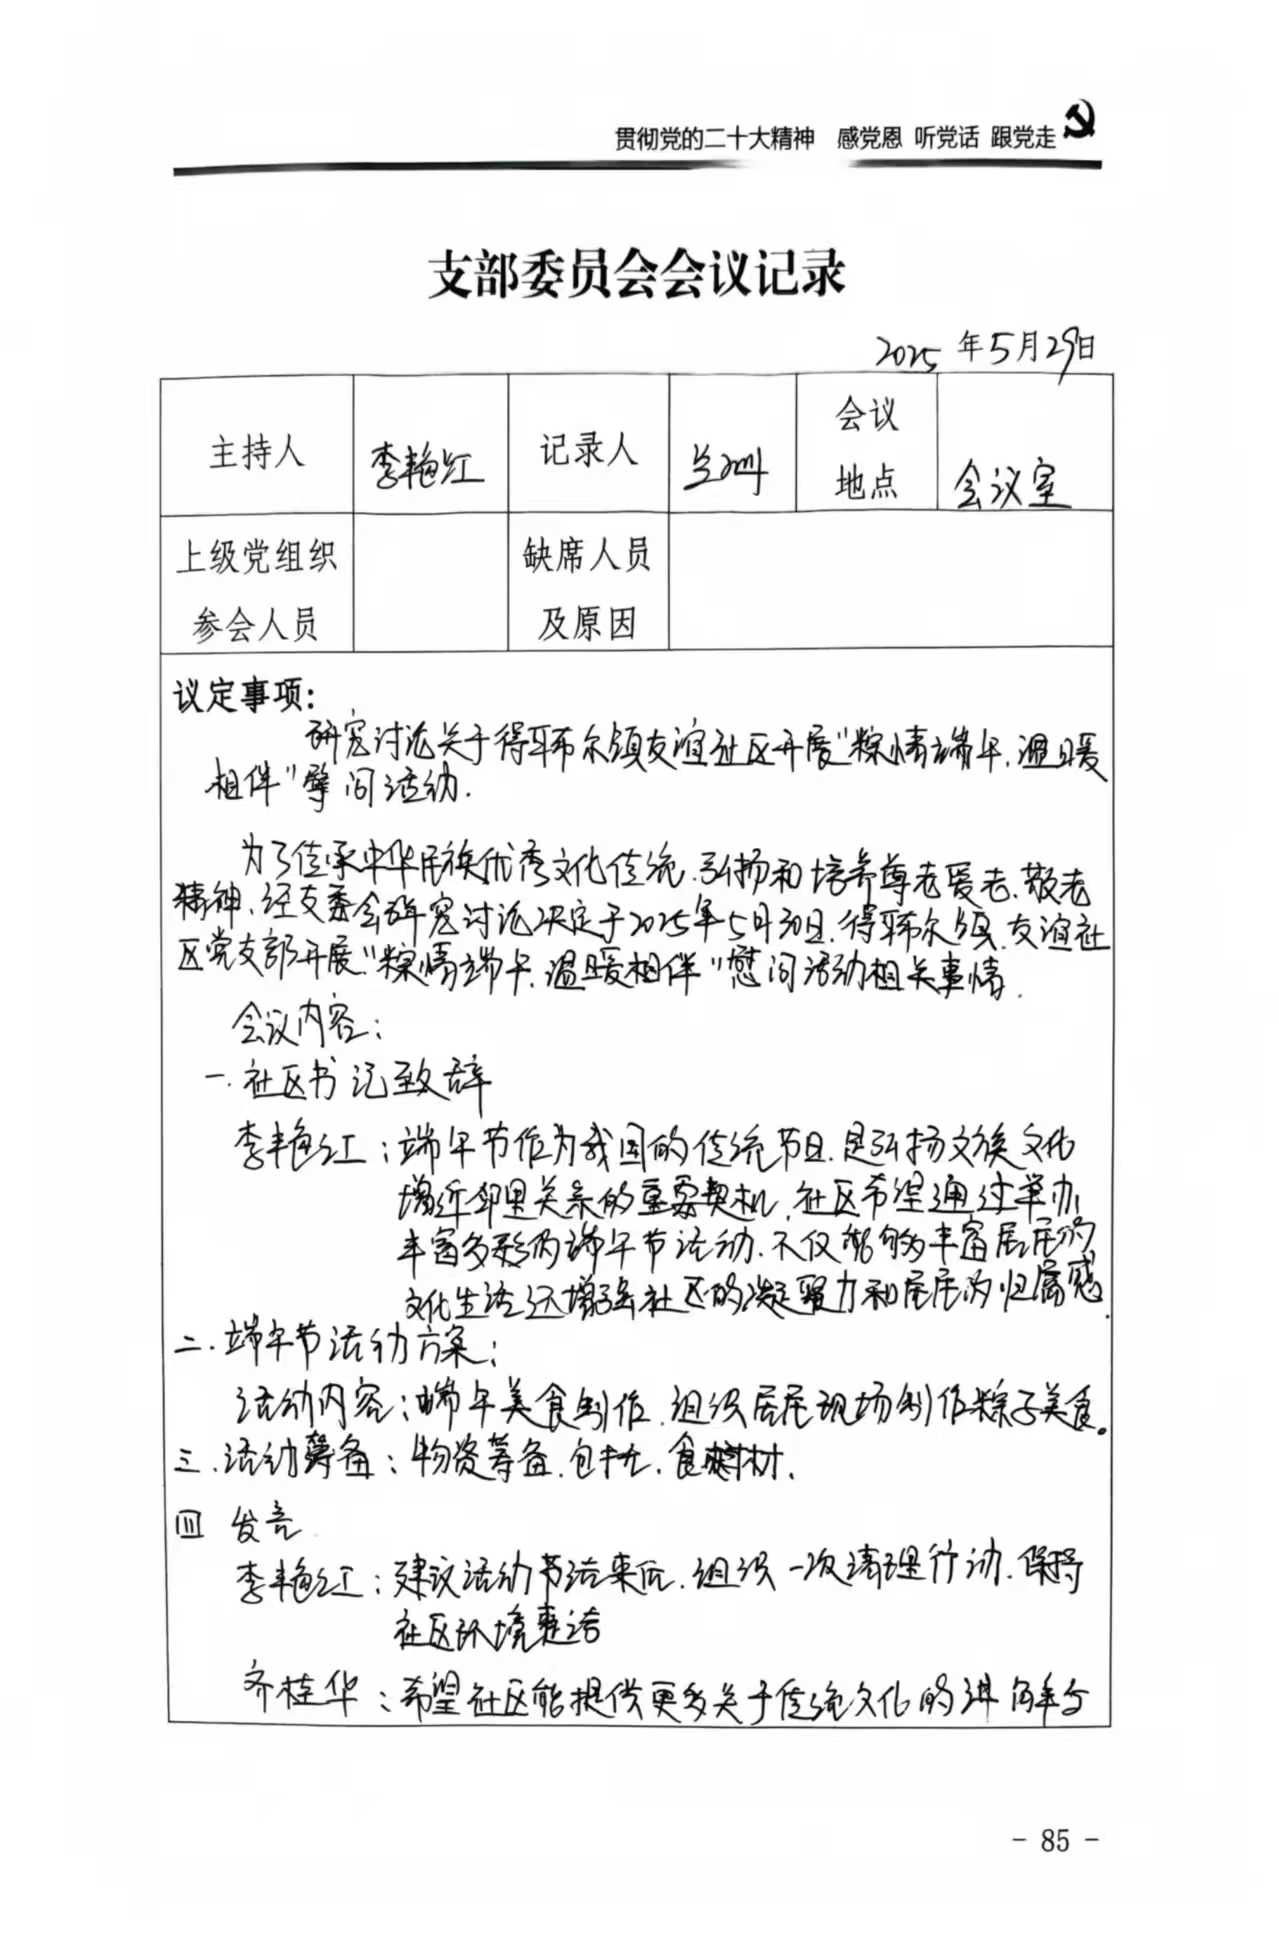 贯彻党的二十大精神 感党恩 听党话 跟党走
支部委员会会议记录
2025年5月29日
主持人 李艳红 记录人 兰 会议地点 会议室
上级党组织参会人员 缺席人员及原因
议定事项：
研究讨论关于得耳布尔镇友谊社区开展“粽情端午.温暖
相伴”慰问活动.
为了传承中华民族优秀文化传统.弘扬和培养尊老爱老.敬老
精神、经支委会研究讨论决定于2025年5月30日.得耳布尔镇.友谊社
区党支部开展“粽情端午.温暖相伴”慰问活动相关事情.
会议内容：
一.社区书记致辞
李艳红：端午节作为我国的传统节日.是弘扬文族文化
增近邻里关系的重要契机.社区希望通过举办
丰富多彩的端午节活动.不仅能够丰富居民的
文化生活还增强社区的凝聚力和居民的归属感.
二.端午节活动方案：
活动内容：端午美食制作.组织居民现场制作粽子美食。
三.活动筹备：物资筹备.包括.食材.
四 发言
李艳红：建议活动节结束后.组织一次清理行动.保持
社区环境整洁
齐桂华：希望社区能提供更多关于传统文化的讲解与
- 85 -